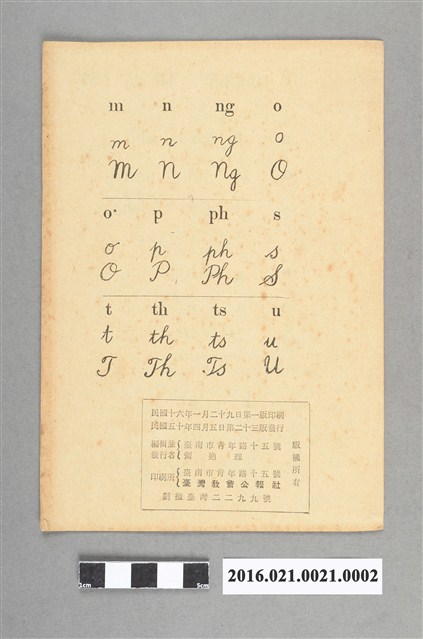 m n ng o
m n ng o
M N Ng O
o͘ p ph s
o p ph s
O P Ph S
t th ts u
t th ts u
T Th Ts U
民國十六年一月二十九日第一版印刷
民國五十年四月五日第二十三版發行
編輯兼
發行者
臺南市青年路十五號
版權所有
印刷所
臺南市青年路十五號
臺灣教會公報社
劃撥臺灣二二九九號
1cm 5cm
2016.021.0021.0002